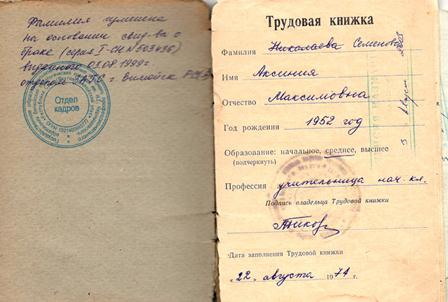 Фамилия изменена
на основании свид-ва о
браке (серия I-СН №503436)
выданного 03.08.1999г
отделом ЗАГС г Вилюйск РС(Я)
Отдел
кадров
Трудовая книжка
Фамилия Николаева Семенова
Имя Аксиния
Отчество Максимовна
Год рождения 1952 год
Образование: начальное, среднее, высшее
(подчеркнуть)
Профессия учительница нач. кл.
Подпись владельца Трудовой книжки
Дата заполнения Трудовой книжки
„22„ августа 1971 г.